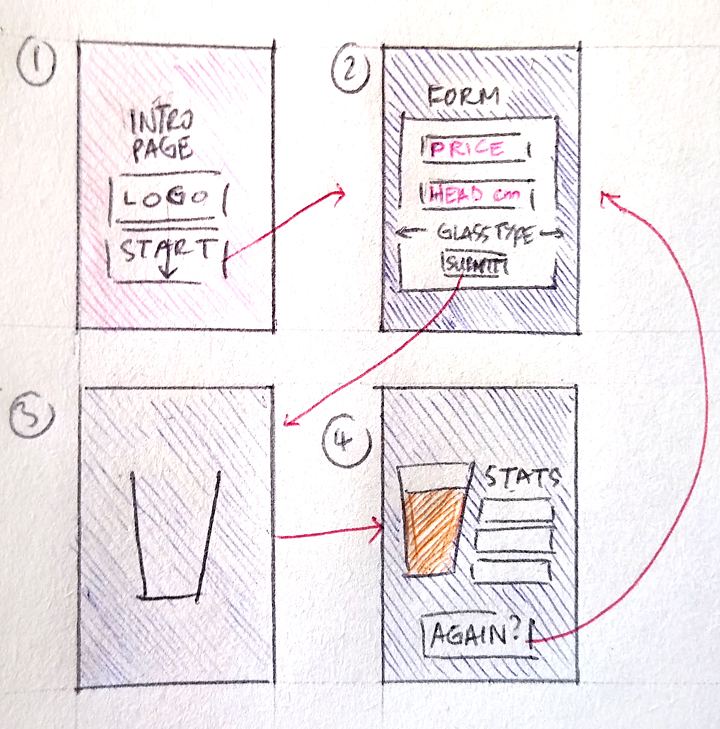 1
INTRO
PAGE
LOGO
START
2
FORM
PRICE
HEAD cm
GLASS TYPE
SUBMIT
3
4
STATS
AGAIN?